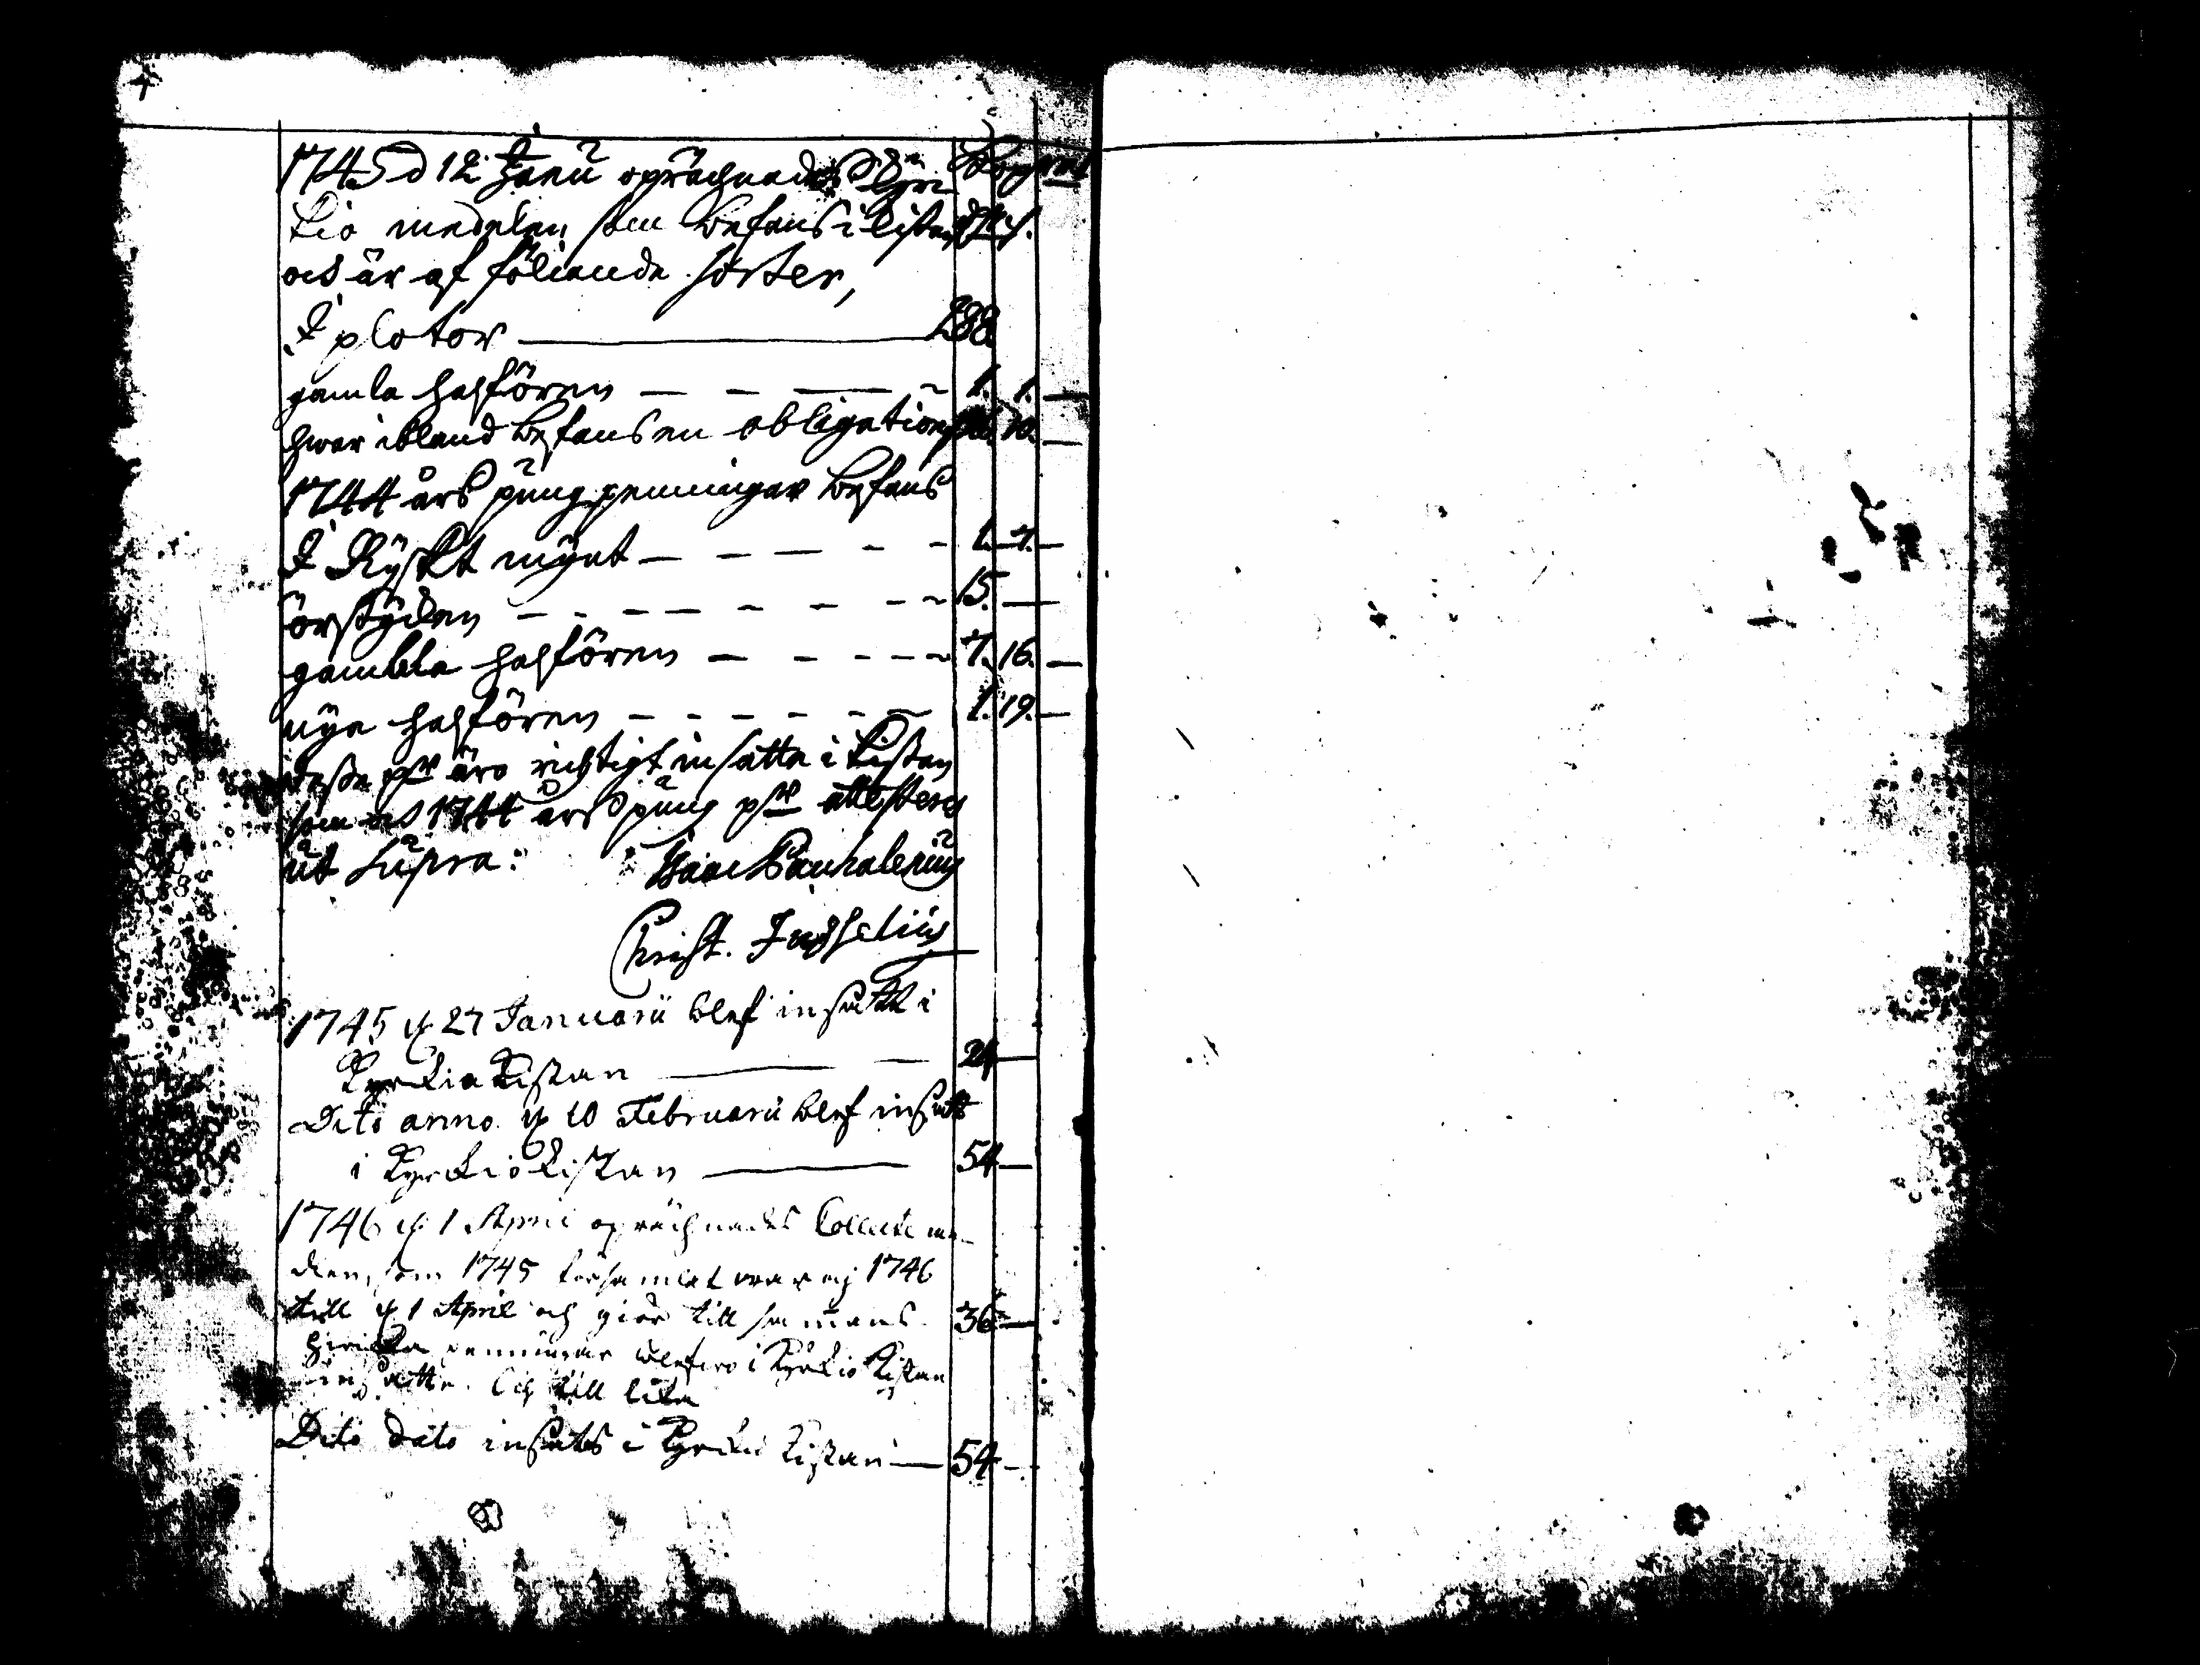 1745 d 12 Janu oprächnades Kyr
kio medelen som befans i kistan
och är af föliande sorter,
I plotor 288.
gamla halfören 1. 1.
hwar ibland befans en obligation 10.
1744 års pung penningar befans
I Ryskt mynt 1. 7.
örstycken 15.
gambla halfören 7. 16.
nya halfören 1. 19.
desse pgr äro richtigt insatte i kistan
som och 1744 års pung pgr attesteres
ut supra:
Christ.
1745 d 27 Januarii blef insatt i
Kyrkiokistan 24
Dito anno d 10 Februarii blef insatt
i Kyrkiokistan 54
1746 d 1 April oprächnades Collecte me-
dlen, som 1745 församlat war och 1746
till d 1 April och giör till sammans 36
hwilka penningar blefwo i Kyrkio Kistan
insatte. Och till lika
Dito dato insattes i Kyrkio kistan 54